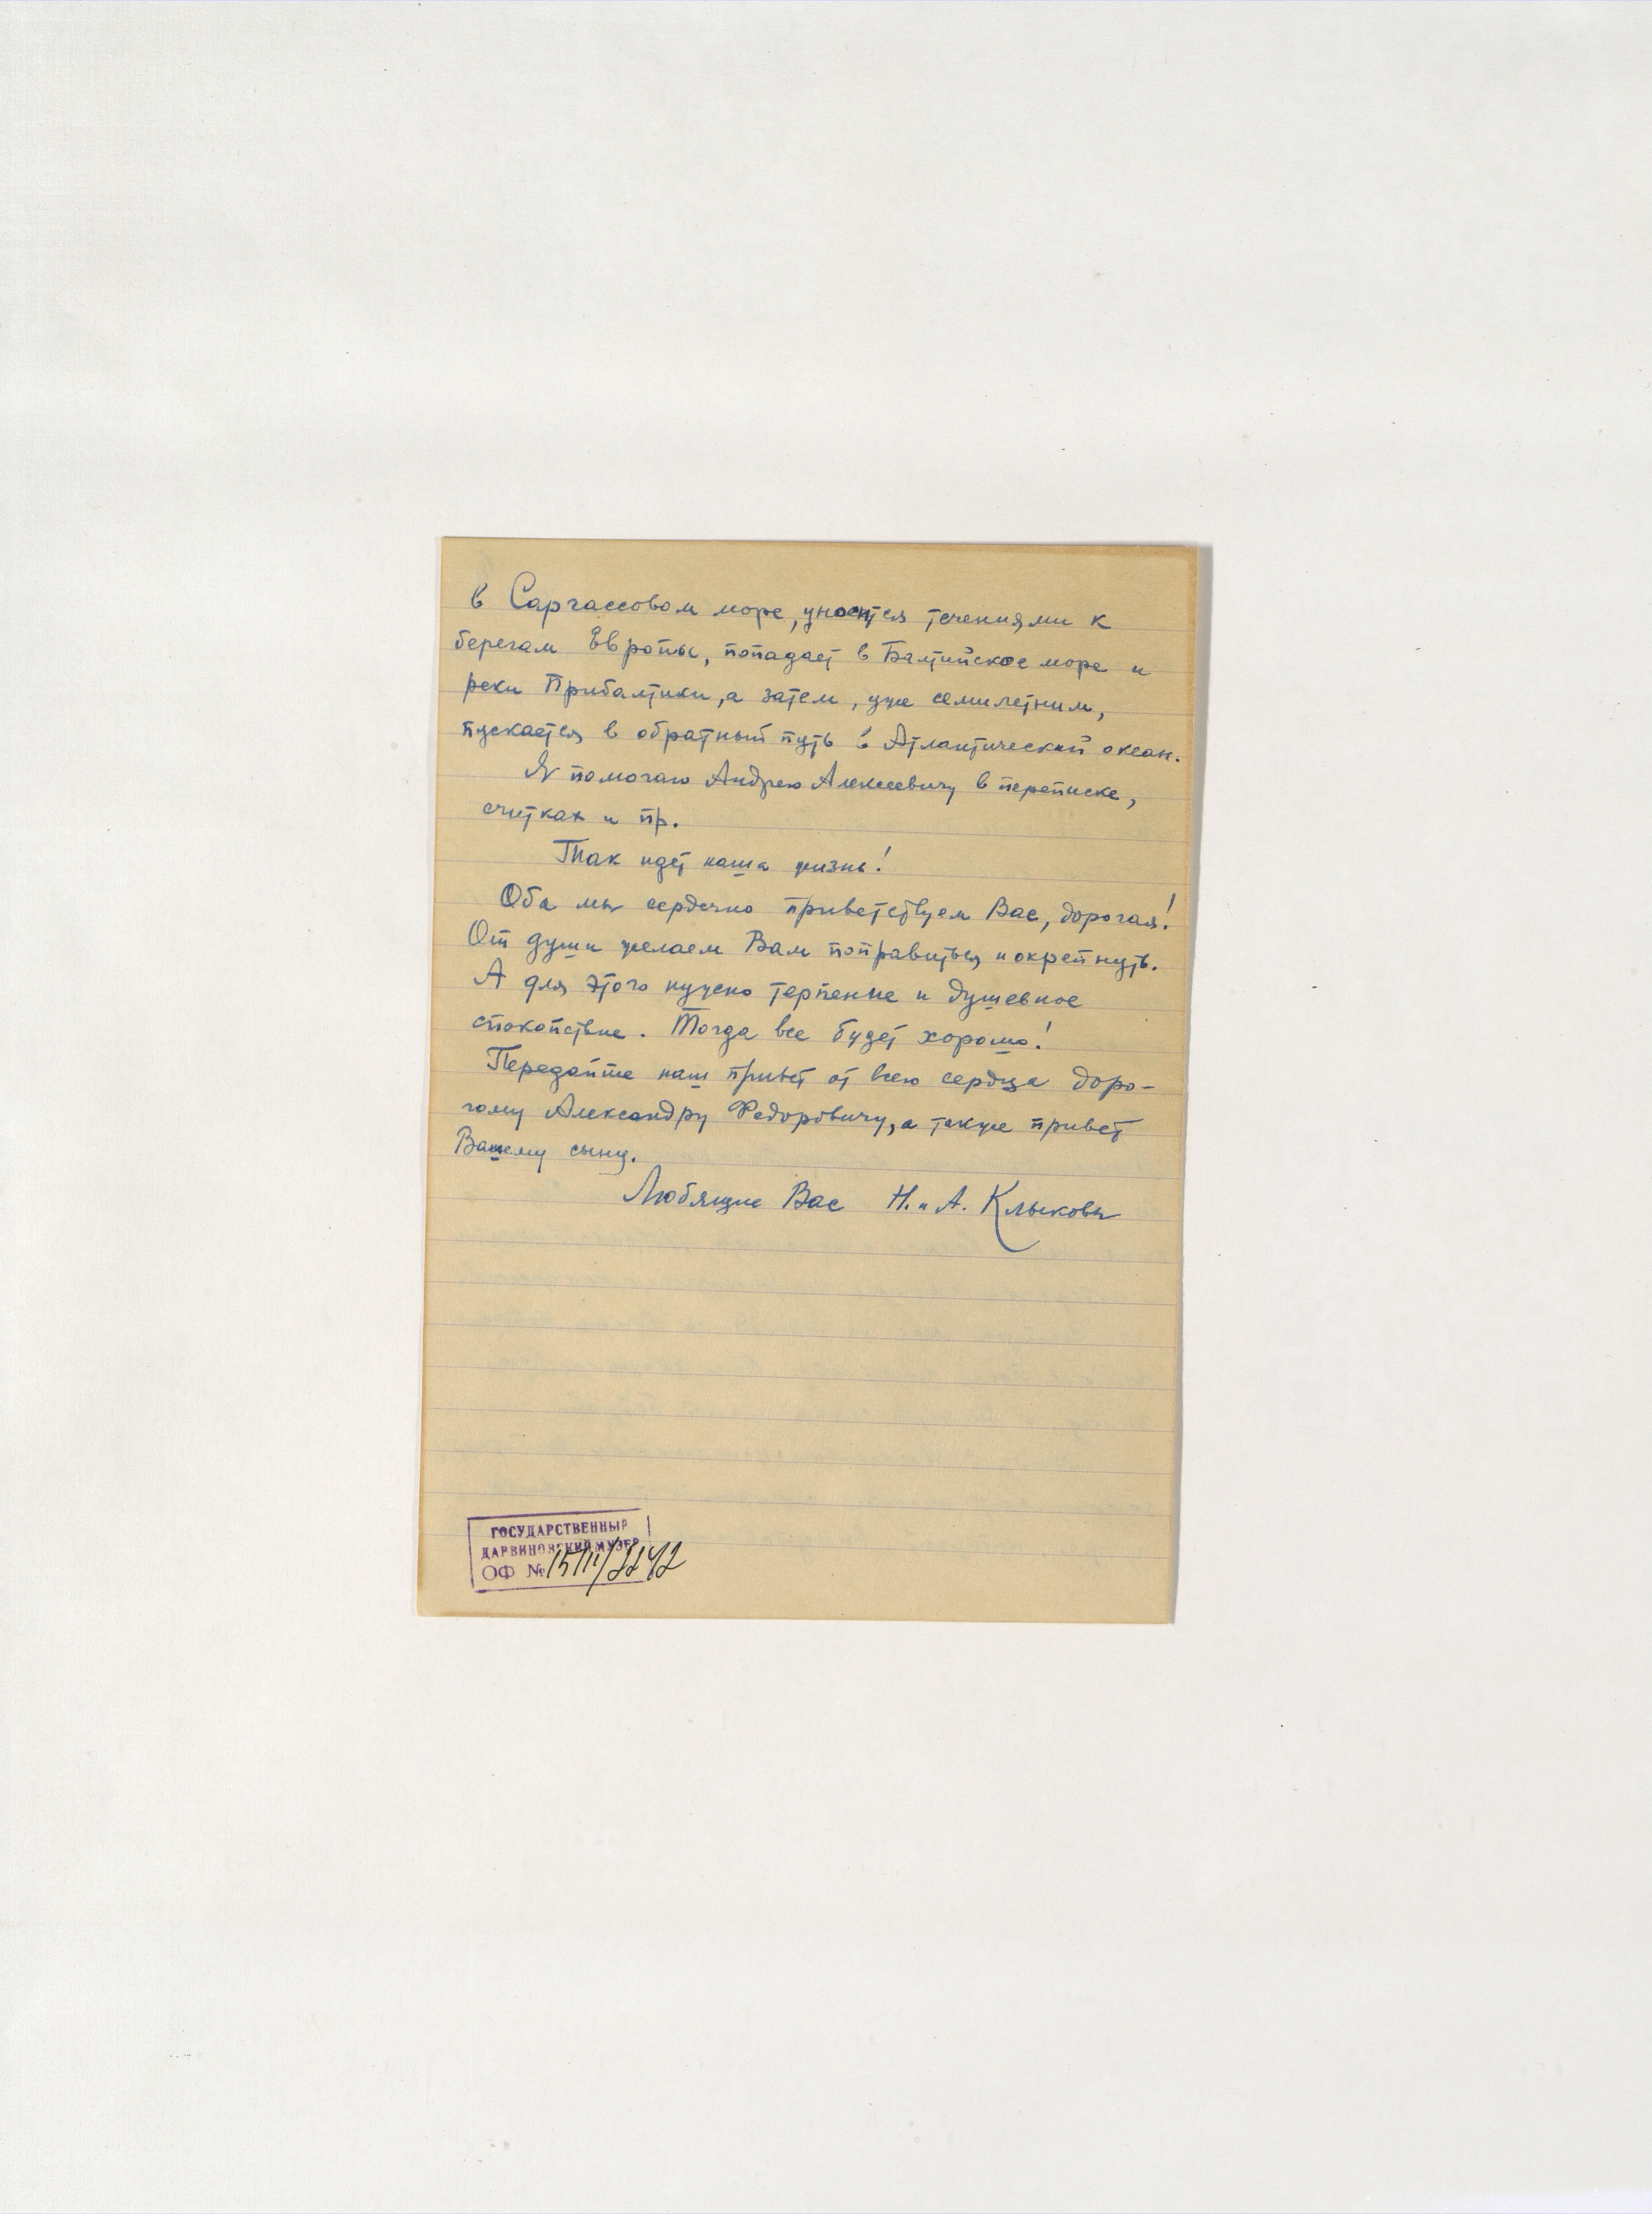 в Саргассовом море, уносится течениями к
берегам Европы, попадает в Балтийское море и
реки Прибалтики, а затем, уже семилетним,
пускается в обратный путь в Атлантический океан.
Я помогаю Андрею Алексеевичу в переписке,
считках и пр.
Так идет наша жизнь!
Оба мы сердечно приветствуем Вас, дорогая!
От души желаем Вам поправиться и окрепнуть.
А для этого нужно терпение и душевное
спокойствие. Тогда все будет хорошо!
Передайте наш привет от всего сердца доро-
гому Александру Федоровичу, а также привет
Вашему сыну.
Любящие Вас Н. и А. Клыковы
ГОСУДАРСТВЕННЫЙ
ДАРВИНОВСКИЙ МУЗЕЙ
ОФ №